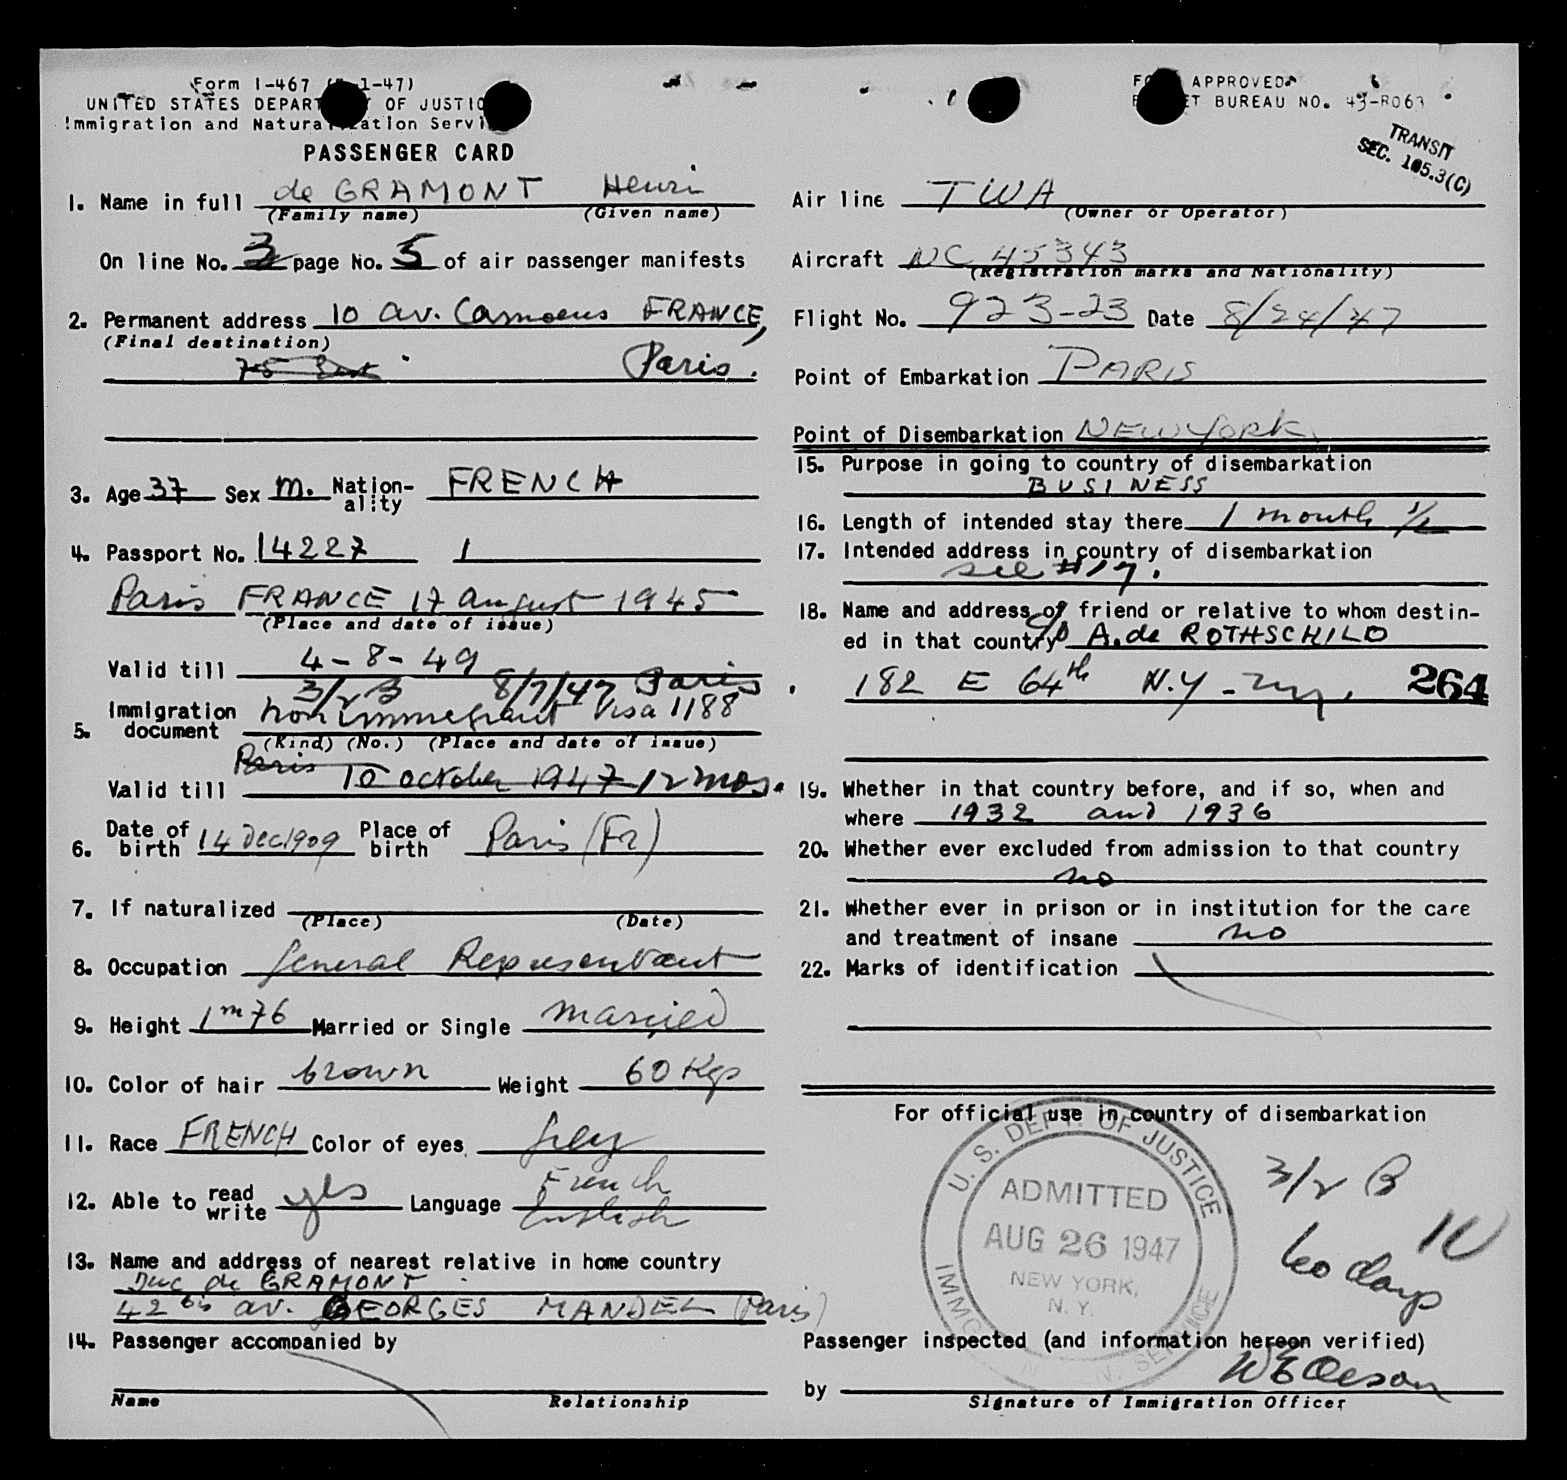 Form I-467 (1-47)
UNITED STATES DEPART OF JUSTIC
Immigration and Natura ation Servi
PASSENGER CARD
1. Name in full de GRAMONT Henri
(Family name) (Given name)
On line No. 3 page No. 5 of air passenger manifests
2. Permanent address 10 av. Camoens FRANCE,
(Final destination)
Paris.
3. Age 37 Sex M. Nation-ality FRENCH
4. Passport No. 14227 1
Paris FRANCE 17 august 1945
(Place and date of issue)
Valid till 4-8-49
3/2 B 8/7/47 Paris
5. Immigration document non immegrant Visa 1188
(Kind) (No.) (Place and date of issue)
Valid till Paris 10 october 1947 12 mos.
6. Date of birth 14 Dec 1909 Place of birth Paris (Fr)
7. If naturalized
(Place) (Date)
8. Occupation General Representant
9. Height 1m76 Married or Single married
10. Color of hair brown Weight 60 Kgs
11. Race FRENCH Color of eyes grey
12. Able to read write yes Language French English
13. Name and address of nearest relative in home country
Duc de GRAMONT
42 bis av. GEORGES MANDEL (Paris)
14. Passenger accompanied by
Name Relationship
APPROVED
ET BUREAU NO. 43-R063
TRANSIT
SEC. 105.3(C)
Air line TWA
(Owner or Operator)
Aircraft NC 45343
(Registration marks and Nationality)
Flight No. 923-23 Date 8/24/47
Point of Embarkation PARIS
Point of Disembarkation NEW YORK
15. Purpose in going to country of disembarkation
BUSINESS
16. Length of intended stay there 1 month 1/2
17. Intended address in country of disembarkation
see #17.
18. Name and address of friend or relative to whom destin-
ed in that country c/o A. de ROTHSCHILD
182 E 64th N.Y - ny.
264
19. Whether in that country before, and if so, when and
where 1932 and 1936
20. Whether ever excluded from admission to that country
no
21. Whether ever in prison or in institution for the care
and treatment of insane no
22. Marks of identification
For official use in country of disembarkation
U. S. DEPT. OF JUSTICE
ADMITTED
AUG 26 1947
NEW YORK,
N. Y.
3/2 B
60 days
Passenger inspected (and information hereon verified)
by W E Oleson
Signature of Immigration Officer